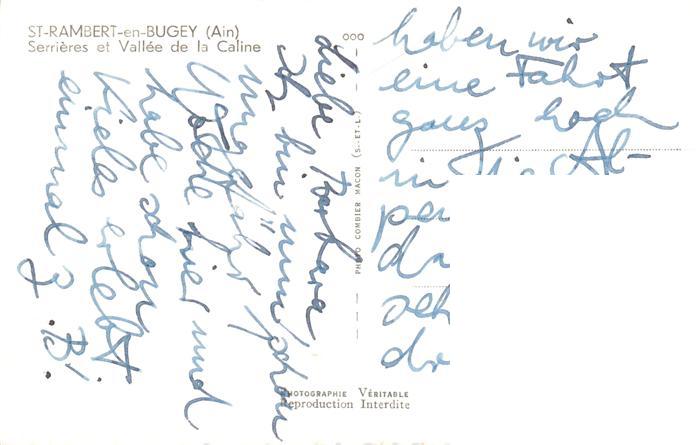 ST-RAMBERT-en-BUGEY (Ain)
Serrières et Vallée de la Caline
liebe Barbara
Ich bin nun schon
ungefähr 1
Woche hier und
habe schon
vieles erlebt
einmal z. B.:
PHOTO COMBIER MACON (S.-ET-L.)
PHOTOGRAPHIE VÉRITABLE
Reproduction Interdite
haben wir
eine Fahrt
ganz hoch
in die Al-
pen
da
seh